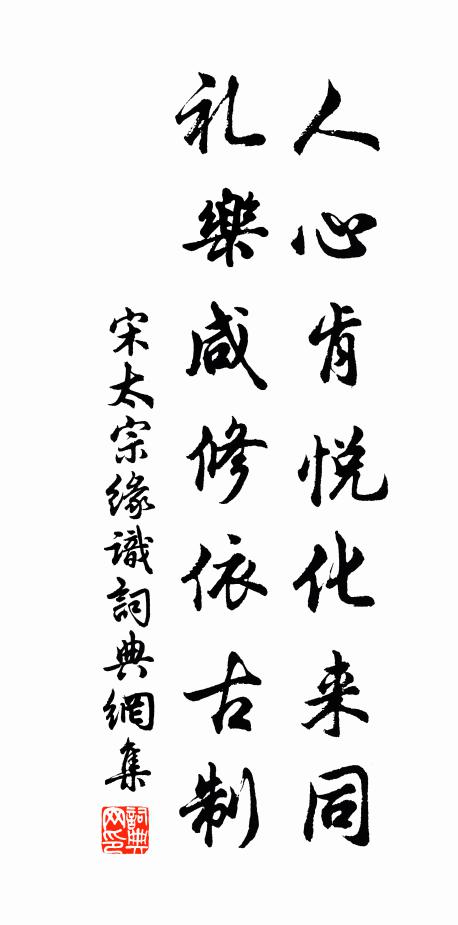 人心肯悦化来同
礼樂咸修依古制
宋太宗緣識詞典網集
詞典網印